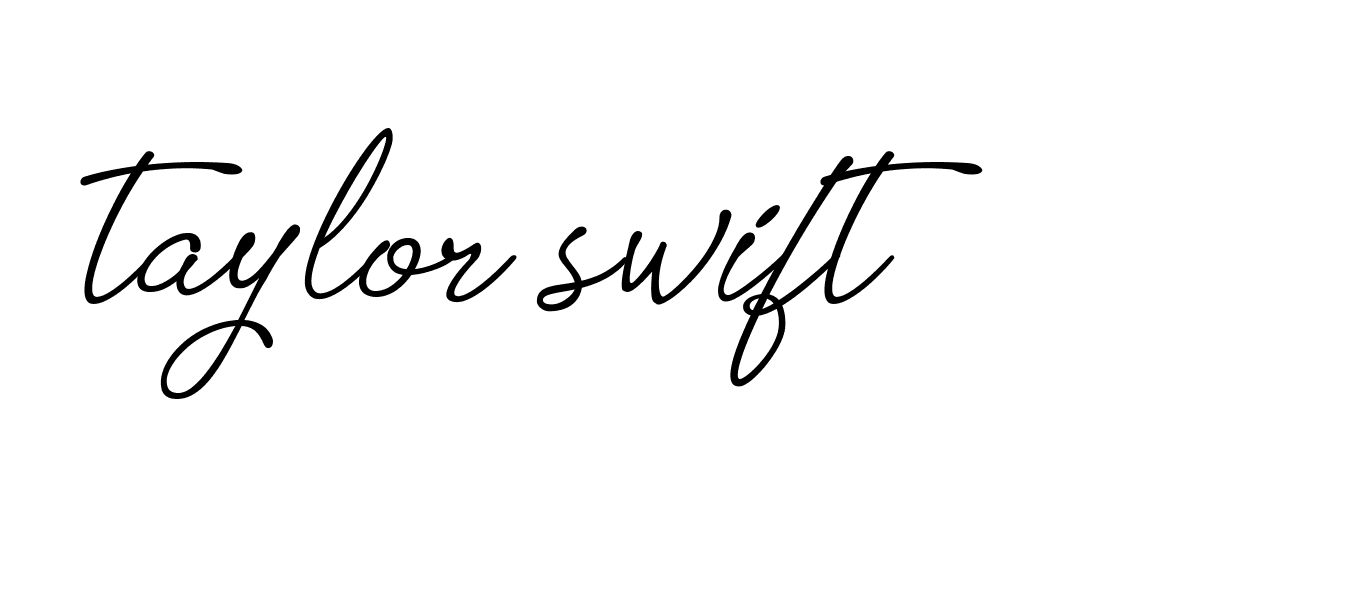 taylor swift